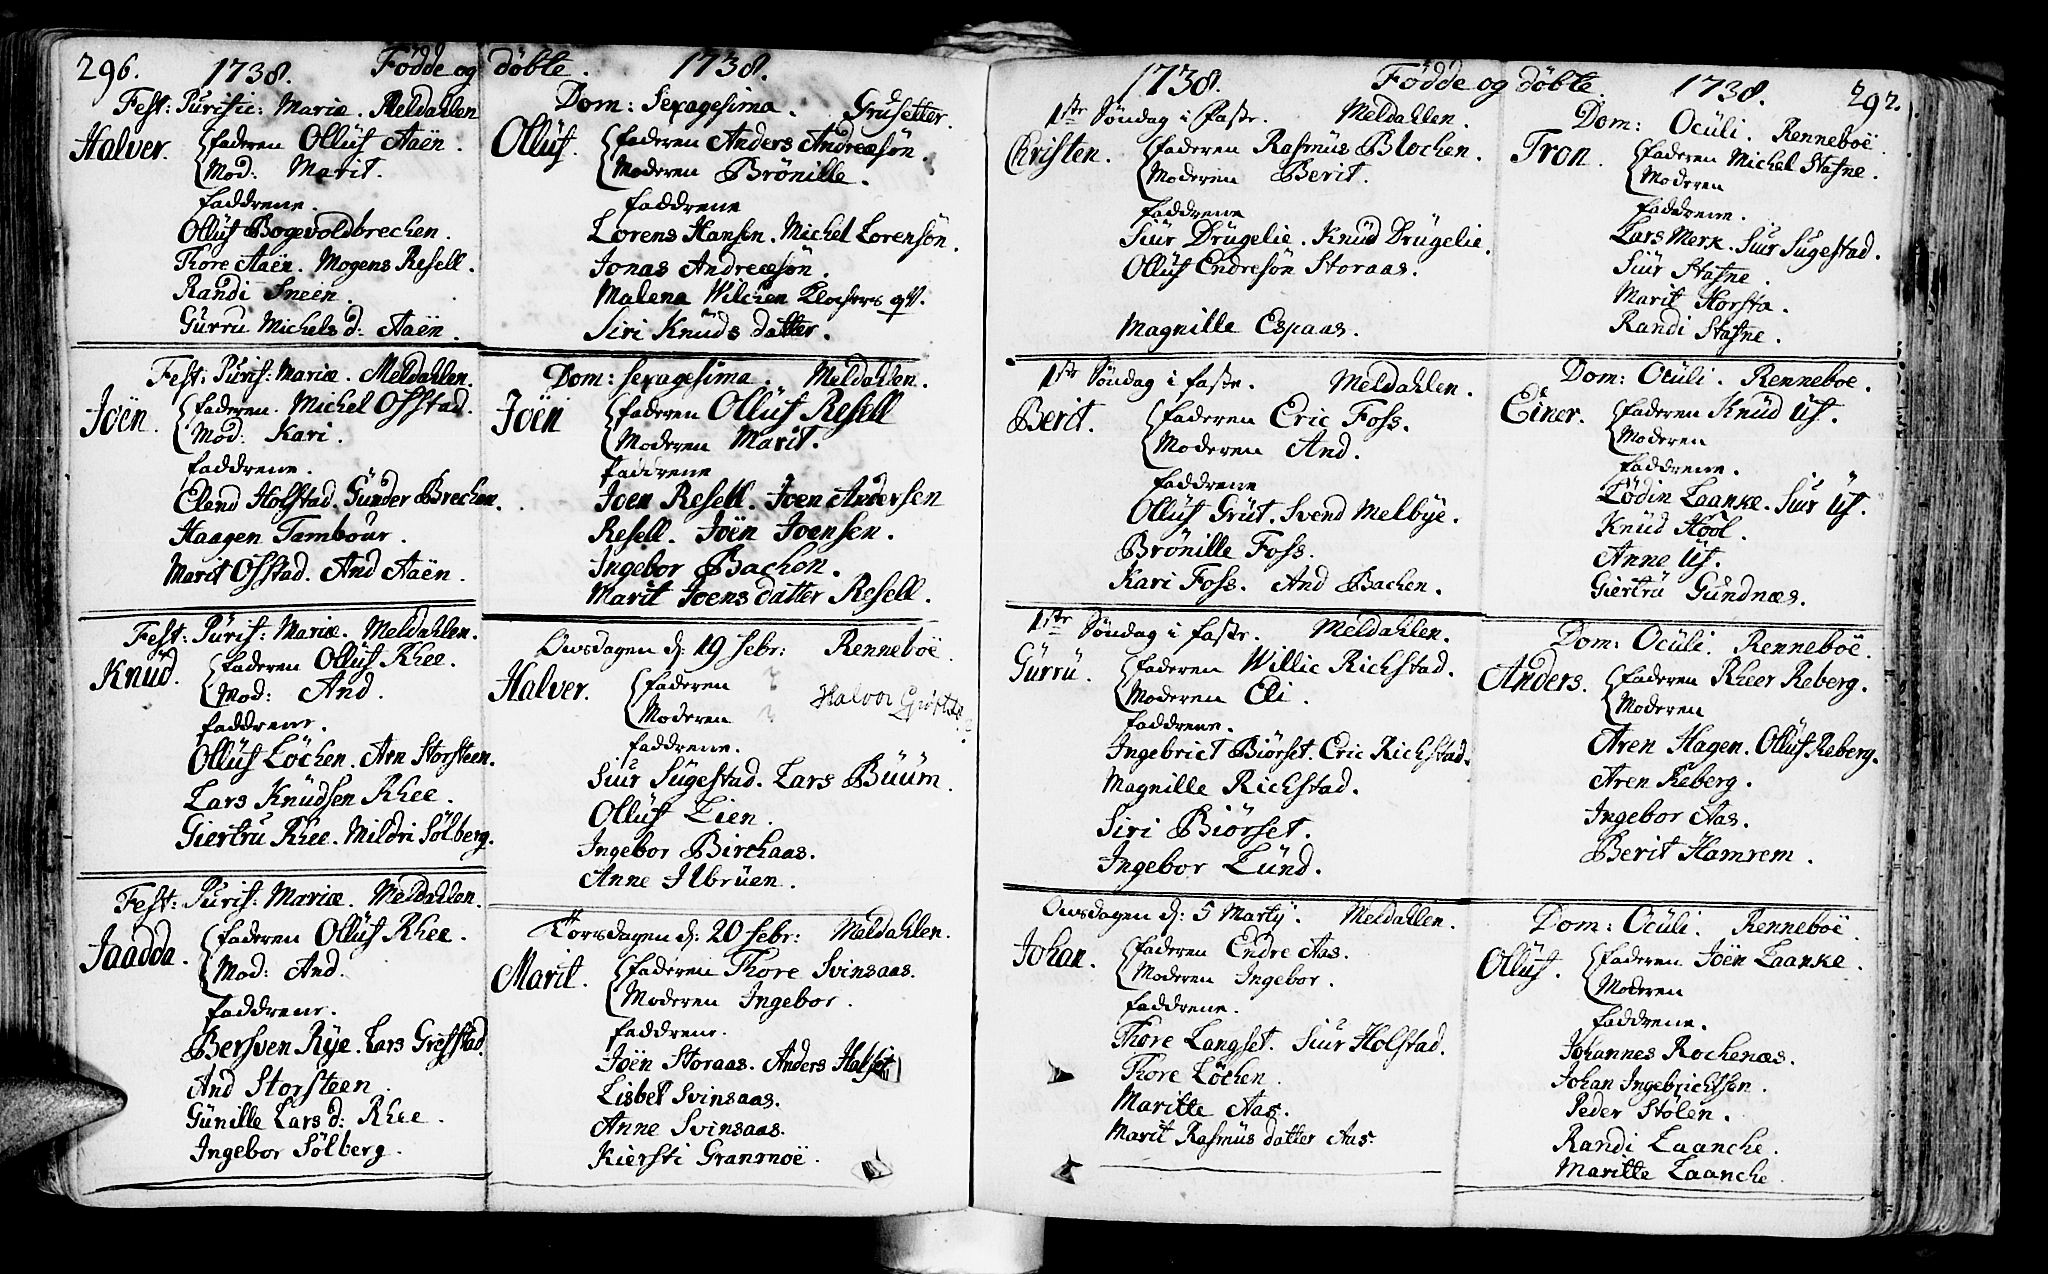 296. 1738. Födde og döbte. 1738.
Fest: Purific: Mariæ. Meldahlen
Halver. faderen Ollüf Aaën.
Mod: Marit.
faddrene.
Ollüf Bogevoldbrechen.
Thore Aaën. Mogens Resell.
Randi Sneen.
Gürru Michels d: Aaën.
Fest: Purif: Mariæ. Meldahlen.
Joën. faderen. Michel Ofstad.
Mod: Kari.
faddrene.
Elend Holstad. Gunder Brechen.
Haagen Tambour.
Marit Ofstad. And Aaën.
Fest: Purif: Mariæ. Meldahlen.
Knüd. faderen Ollüf Rhee.
Mod: And.
faddrene.
Ollüf Löchen. Arn Storsteen.
Lars Knüdsen Rhee.
Giertru Rhee. Mildri Sölberg.
Fest: Purif: Mariæ. Meldahlen.
Jaadda. faderen Ollüf Rhee.
Mod: And.
faddrene.
Bersven Rye. Lars Grefstad.
And Storsteen
Günille Lars d: Rhee.
Ingebor Sölberg.
Dom: Sexagesima. Grusetter.
Ollüf. faderen Anders Andreæsön.
Moderen Brönille.
faddrene
Lorens Hansen. Michel Lorensön.
Jonas Andreæsön.
Malena Wilchen Klochers qv.
Siri Knüds datter.
Dom: sexagesima. Meldahlen.
Joën faderen Ollüf Resell
Moderen Marit.
faddrene
Joen Resell. Joen Andersen
Resell. Joën Joensen.
Ingebor Bachen.
Marit Joens datter Resell.
Onsdagen d: 19 febr: Renneboë.
Halver. faderen
Moderen Halvor
faddrene.
Siur Sügestad. Lars Büüm.
Ollüf Lien.
Ingebor Birchaas.
Anne Ilbrüen.
Torsdagen d: 20 febr: Meldahlen.
Marit. faderen Thore Svinsaas.
Moderen Ingebor.
faddrene.
Joën Storaas. Anders Halset
Lisbet Svinsaas.
Anne Svinsaas.
Kiersti Granmoë.
1738. Födde og döbte. 1738. 297.
1ste Söndag i faste. Meldahlen.
Christen. faderen Rasmüs Blochen.
Moderen Berit.
faddrene
Siur Drügelie. Knüd Drügelie.
Ollüf Endresön Storaas.
Magnille Espaas.
1ste Söndag i faste. Meldahlen.
Berit. faderen Eric Foss.
Moderen And.
faddrene
Ollüf Grüt. Svend Melbye.
Brönille Foss.
Kari Foss. And Bachen.
1ste Söndag i faste. Meldahlen.
Gürrü. faderen Willic Richstad.
Moderen Eli.
faddrene.
Ingebrict Biörset. Eric Richstad.
Magnille Richstad.
Siri Biörset.
Ingebor Lünd.
Onsdagen d: 5 Martij. Meldahlen.
Johan. faderen Endre Aas.
Moderen Ingebor.
faddrene.
Thore Langset. Siur Holstad.
Thore Löchen.
Maritte Aas.
Marit Rasmüs datter Aas.
Dom: Ocüli. Renneboë.
Tron. faderen Michel Stafne.
Moderen
faddrene.
Lars Merk. Siur Sügestad.
Siür Stafne.
Marit Horsta.
Randi Stafne.
Dom: Ocüli. Renneboe.
Einer. faderen Knüd Üf.
Moderen
faddrene.
Lödin Laanke. Siur Üf.
Knüd Hool.
Anne Üf.
Giertrü Gündnæs.
Dom: Ocüli. Renneboë.
Anders. faderen Rheer Reberg.
Moderen
Aren Hagen. Ollüf Reberg.
Aren Reberg.
Ingebor Aas.
Berit Hamrem.
Dom: Ocüli. Renneboë.
Ollüf. faderen Joën Laanke.
Moderen
faddrene.
Johannes Rochenæs.
Johan Ingebrichtsen.
Peder Stölen.
Randi Laanche.
Maritte Laanche.